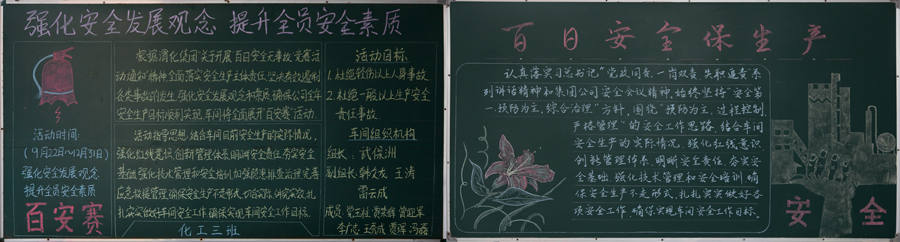 强化安全发展观念 提升全员安全素质
活动时间:
(9月22日~12月31日)
强化安全发展观念
提升全员安全素质
百安赛
根据渭化集团"关于开展百日安全无事故竞赛活
动通知"精神,全面落实安全生产主体责任,坚决有效遏制
各类事故的发生,强化安全发展观念和素质,确保公司全年
安全生产目标顺利实现,车间将全面展开"百安赛"活动.
活动指导思想:结合车间目前安全生产的实际情况,
强化红线意识,创新管理体系,明晰安全责任,夯实安全
基础,强化技术管理和安全培训,加强隐患排查治理,完善
应急救援管理,确保安全生产不走形式,切合实际,讲究实效,扎
扎实实做好车间安全工作,确保实现车间安全工作目标.
化工三班
活动目标
1.杜绝轻伤以上人身事故
2.杜绝一般以上生产安全
责任事故
车间组织机构
组长: 武保洲
副组长:韩文友 王涛
雷云成
百日安全保生产
认真落实习总书记"党政同责、一岗双责、失职追责"系
列讲话精神和集团公司安全会议精神,始终坚持"安全第
一、预防为主、综合治理"方针,围绕"预防为主,过程控制,
严格管理"的安全工作思路,结合车间
安全生产的实际情况,强化红线意识
创新管理体系,明晰安全责任,夯实安
全基础,强化技术管理和安全培训,确
保安全生产不走形式,扎扎实实做好各
项安全工作,确保实现车间安全工作目标.
安全